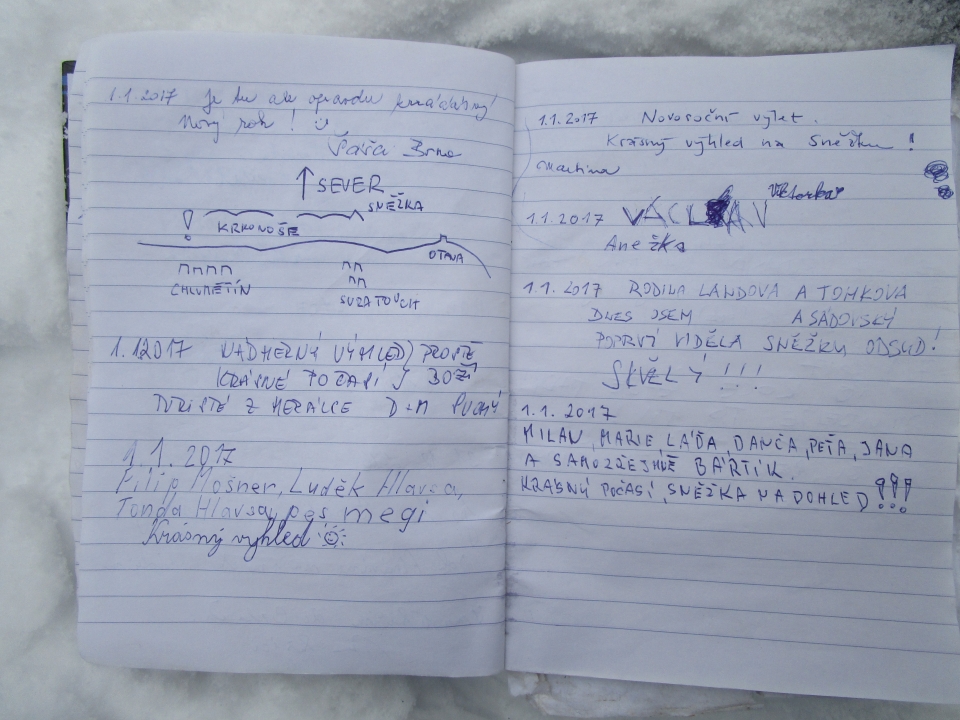 1.1.2017 je tu ale opravdu
Nový rok!
Pája Brno
SEVER
SNĚŽKA
! KRKONOŠE
OTAVA
CHLUMĚTÍN
SVRATOUCH
1.12017 NÁDHERNÝ VÝHLED, PROSTĚ
KRÁSNÉ POČASÍ J BOŽÍ
TURISTÉ Z HERÁLCE D+M
1.1.2017
Filip Mošner, Luděk Hlavsa,
Tonda Hlavsa, pes megi
Krásný výhled
1.1.2017 Novoroční výlet.
Krásný výhled na Sněžku!
Martina
Viktorka
1.1.2017 VÁCLAV
Anežka
1.1.2017 RODINA LANDOVA A TOMKOVA
DNES JSEM A SÁDOVSKÝ
POPRVÍ VIDĚLA SNĚŽKU ODSUD!
SKVĚLÝ!!!
1.1.2017
MILAN, MARIE, LÁĎA, DANČA, PEŤA, JANA
A SAMOZŘEJMĚ BÁRTÍK.
KRÁSNÝ POČASÍ, SNĚŽKA NA DOHLED!!!